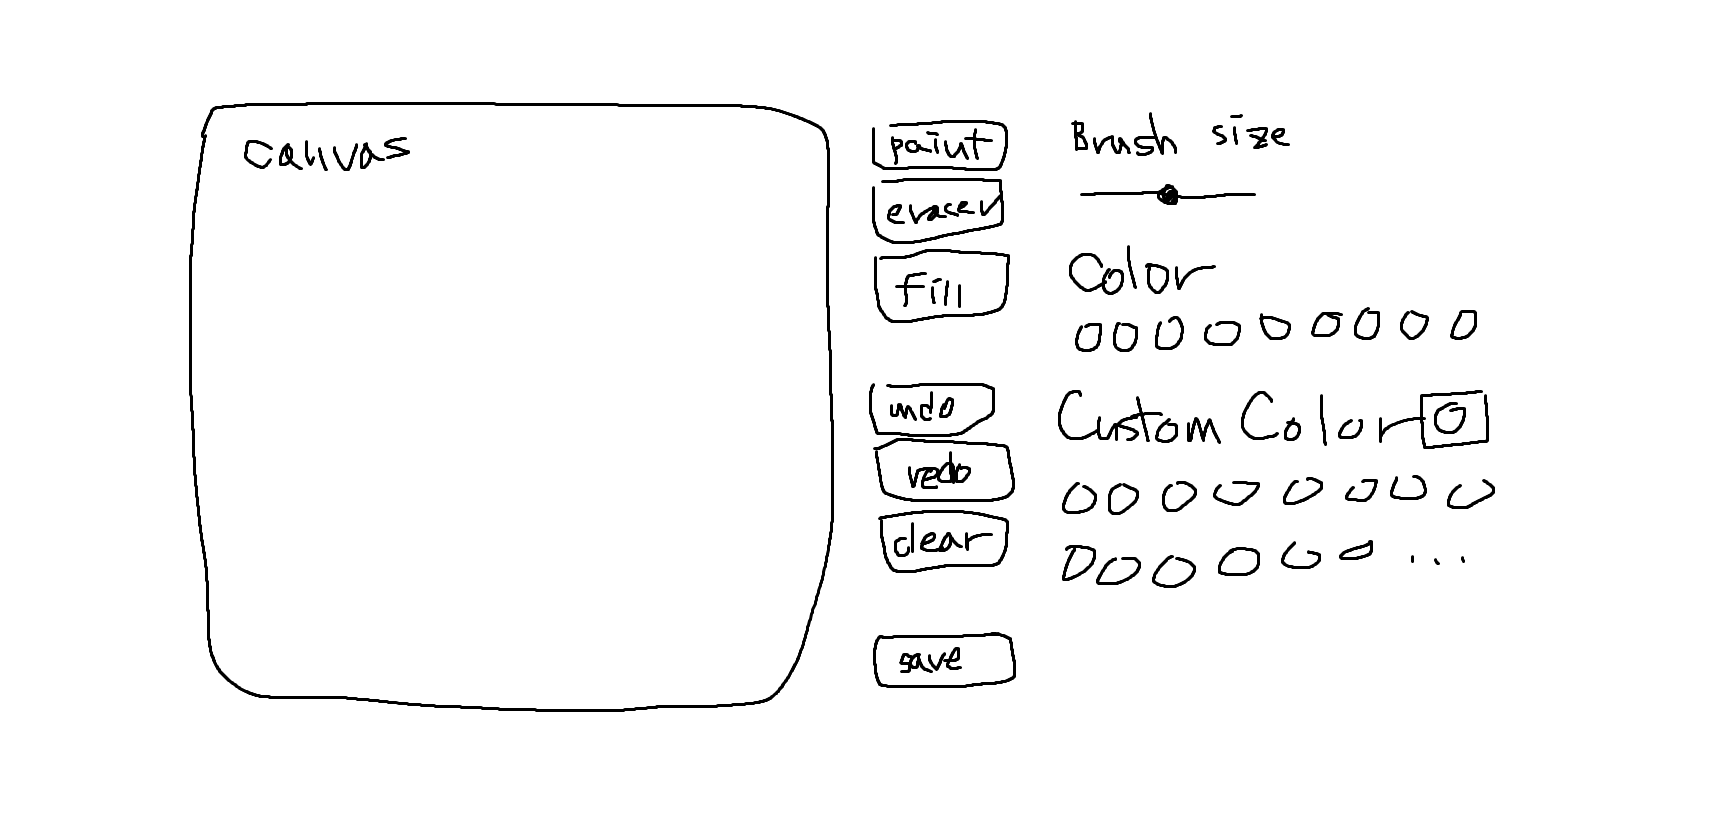 canvas
paint
eracer
fill
undo
redo
clear
save
Brush size
Color
Custom Color
...